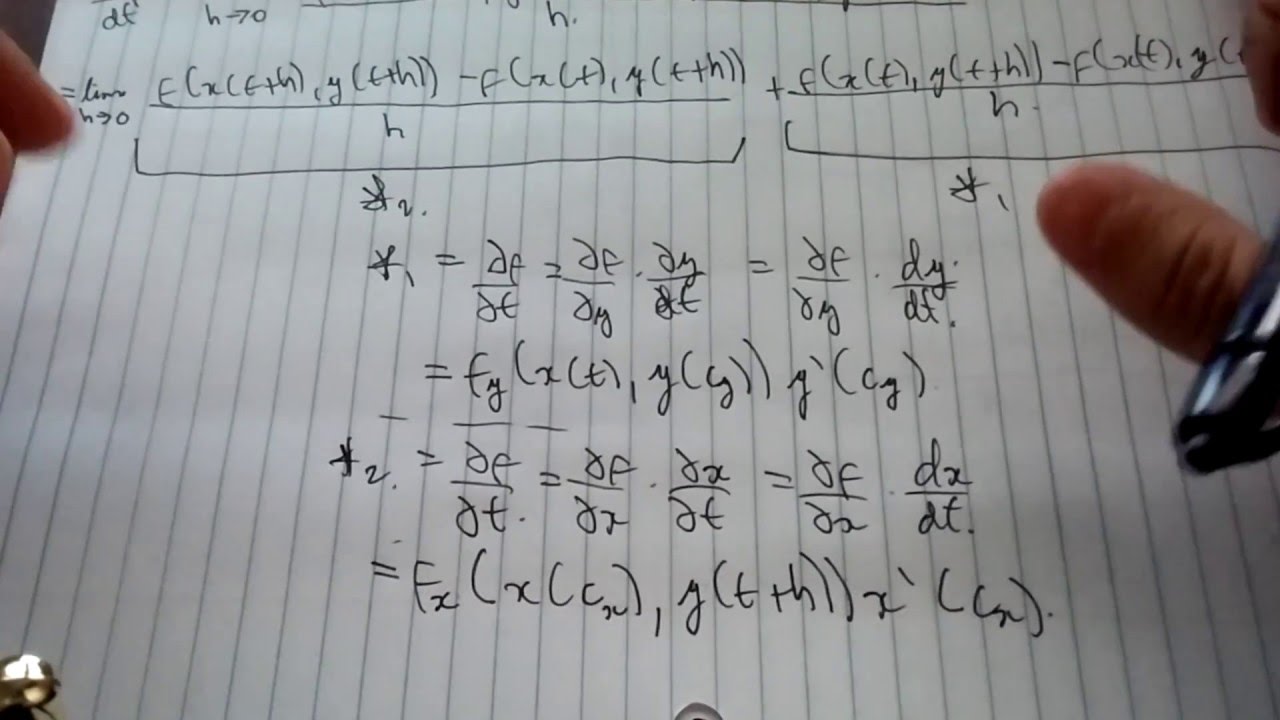 dt h→0 h.
= lim h→0 f(x(t+h), y(t+h)) - f(x(t), y(t+h)) / h + f(x(t), y(t+h)) - f(x(t), y( / h.
*₂. *₁
*₁ = ∂f/∂t = ∂f/∂y · ∂y/∂t = ∂f/∂y · dy/dt.
= f_y(x(t), y(c_y)) y'(c_y).
*₂. = ∂f/∂t. = ∂f/∂x · ∂x/∂t = ∂f/∂x · dx/dt.
= f_x(x(c_x), y(t+h)) x'(c_x).